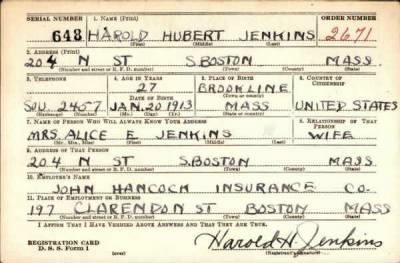 SERIAL NUMBER 1. NAME (Print) ORDER NUMBER
648 HAROLD HUBERT JENKINS 2671
(First) (Middle) (Last)
2. ADDRESS (Print)
204 N ST S.BOSTON MASS.
(Number and street or R. F. D. number) (Town) (County) (State)
3. TELEPHONE 4. AGE IN YEARS 5. PLACE OF BIRTH 6. COUNTRY OF CITIZENSHIP
27 BROOKLINE
DATE OF BIRTH (Town or county)
SOU. 2457 JAN. 20 1913 MASS UNITED STATES
(Exchange) (Number) (Mo.) (Day) (Yr.) (State or country)
7. NAME OF PERSON WHO WILL ALWAYS KNOW YOUR ADDRESS 8. RELATIONSHIP OF THAT PERSON
MRS. ALICE E JENKINS WIFE
(Mr., Mrs., Miss) (First) (Middle) (Last)
9. ADDRESS OF THAT PERSON
204 N ST S.BOSTON MASS
(Number and street or R. F. D. number) (Town) (County) (State)
10. EMPLOYER'S NAME
JOHN HANCOCK INSURANCE CO.
11. PLACE OF EMPLOYMENT OR BUSINESS
197 CLARENDON ST BOSTON MASS
(Number and street or R. F. D. number) (Town) (County) (State)
I AFFIRM THAT I HAVE VERIFIED ABOVE ANSWERS AND THAT THEY ARE TRUE.
REGISTRATION CARD
D. S. S. Form 1 Harold H. Jenkins
(Registrant's signature)